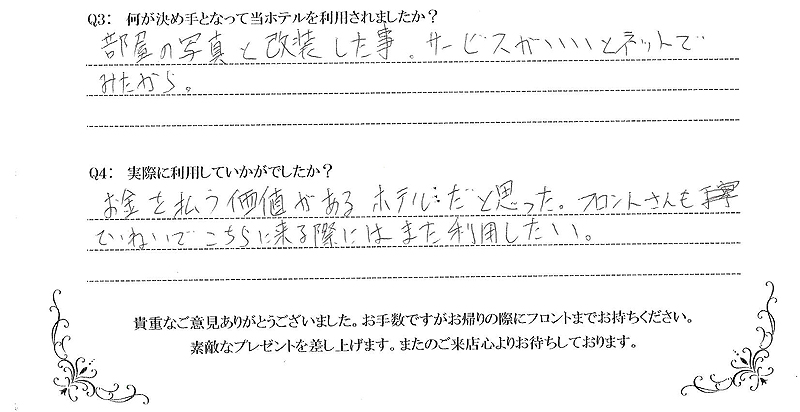 Q3: 何が決め手となって当ホテルを利用されましたか？
部屋の写真と改装した事。サービスがいいとネットで
みたから。
Q4: 実際に利用していかがでしたか？
お金を払う価値があるホテルだと思った。フロントさんも
ていねいでこちらに来る際にはまた利用したい。
貴重なご意見ありがとうございました。お手数ですがお帰りの際にフロントまでお持ちください。
素敵なプレゼントを差し上げます。またのご来店心よりお待ちしております。